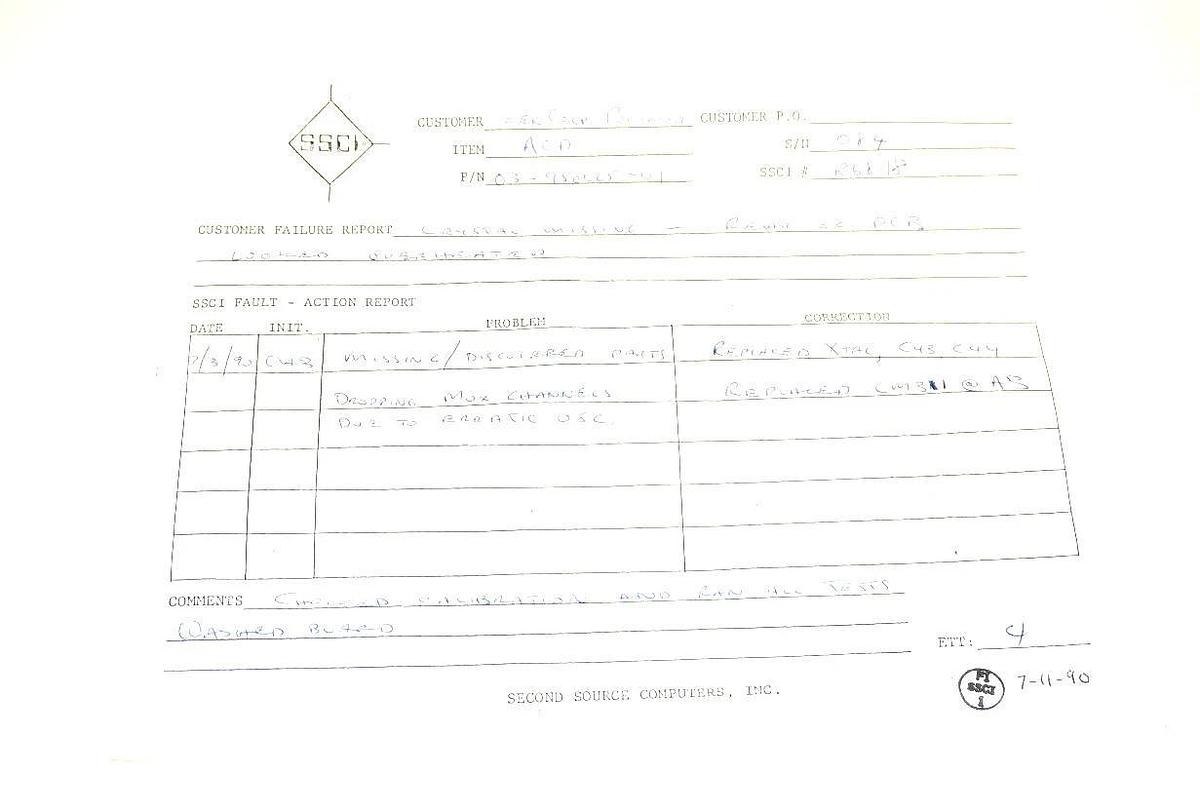 SSCI
CUSTOMER CUSTOMER P.O.
ITEM ACD S/N 084
P/N SSCI #
CUSTOMER FAILURE REPORT CRYSTAL MISSING - PCB
LOOKED
SSCI FAULT - ACTION REPORT
DATE INIT. PROBLEM CORRECTION
7/3/90 CWB MISSING/DISCOLORED PARTS REPLACED XTAL, C43, C44
DROPPING MUX CHANNELS REPLACED LM311 @ A13
DUE TO ERRATIC OSC.
COMMENTS CHECKED CALIBRATION AND RAN ALL TESTS
WASHED BOARD
ETT: 4
SECOND SOURCE COMPUTERS, INC.
FI
SSCI
1
7-11-90